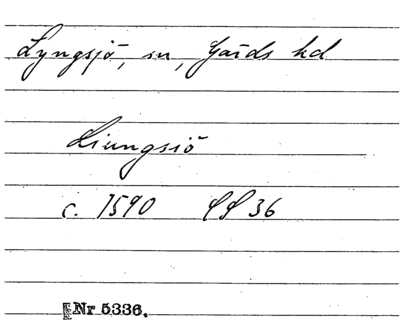 Lyngsjö, sn, Gärds hd
Liungsiö
c. 1590 SS 36
Nr 5336.